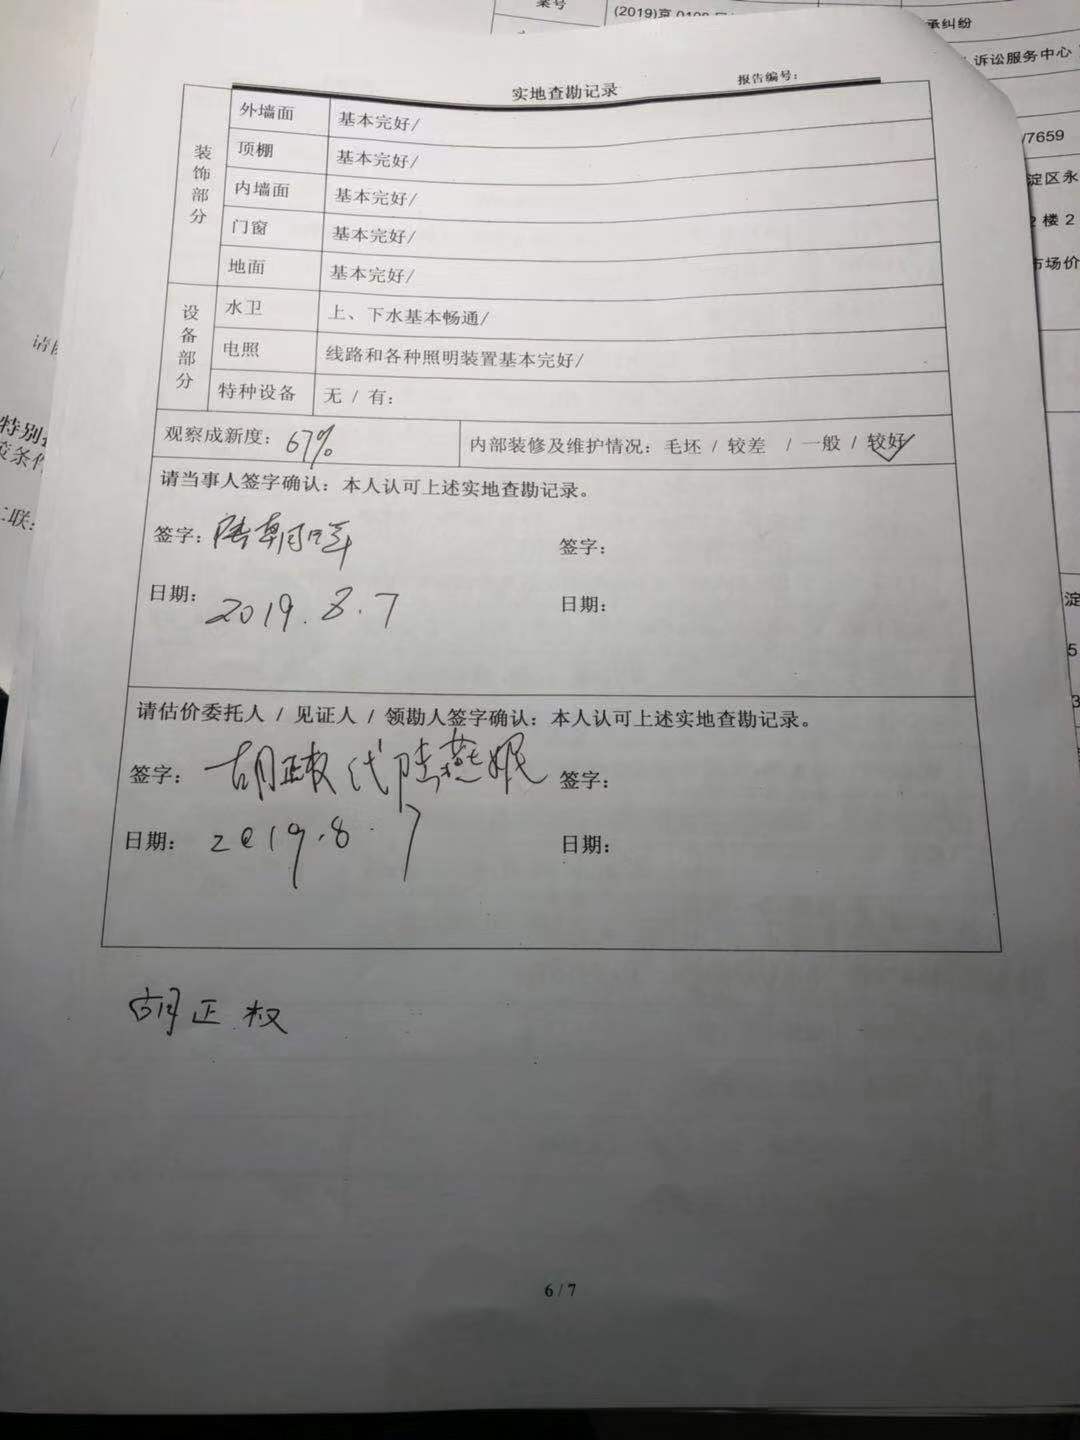 案号
承纠纷
诉讼服务中心
/7659
淀区永
楼 2
市场价
淀
5
3
特别
实地查勘记录
报告编号：
装饰部分
外墙面 基本完好/
顶棚 基本完好/
内墙面 基本完好/
门窗 基本完好/
地面 基本完好/
设备部分
水卫 上、下水基本畅通/
电照 线路和各种照明装置基本完好/
特种设备 无 / 有：
观察成新度：67% 内部装修及维护情况：毛坯 / 较差 / 一般 / 较好
请当事人签字确认：本人认可上述实地查勘记录。
签字： 签字：
日期：2019.8.7 日期：
请估价委托人 / 见证人 / 领勘人签字确认：本人认可上述实地查勘记录。
签字：胡正权代陆燕妮 签字：
日期：2019.8.7 日期：
胡正权
6 / 7